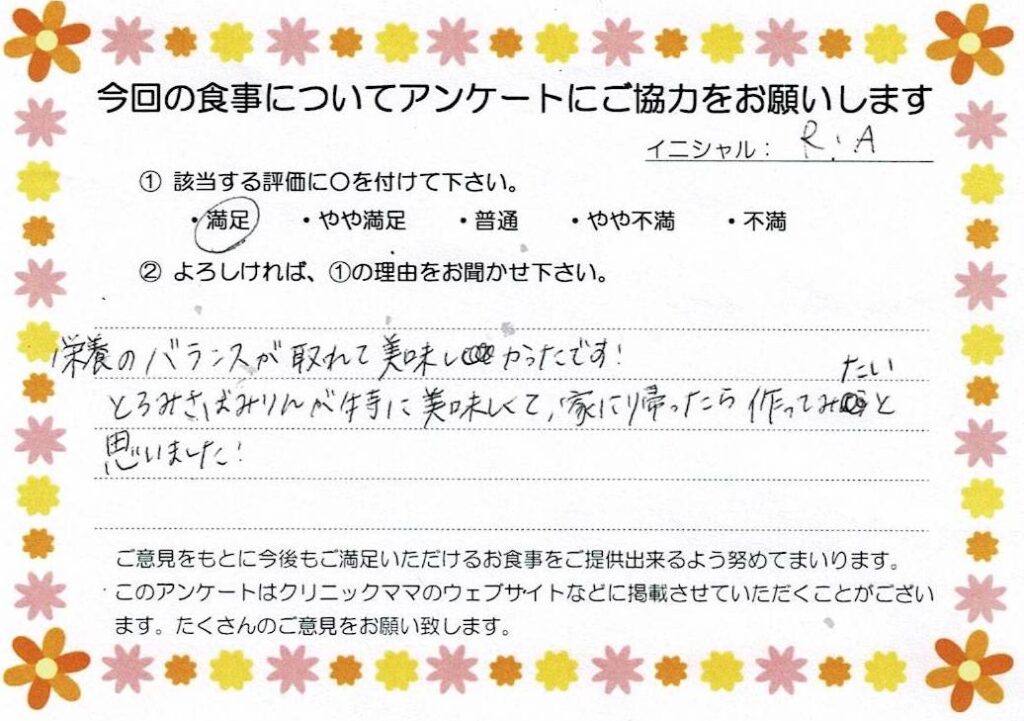 今回の食事についてアンケートにご協力をお願いします
イニシャル： R.A
① 該当する評価に〇を付けて下さい。
・満足 ・やや満足 ・普通 ・やや不満 ・不満
② よろしければ、①の理由をお聞かせ下さい。
栄養のバランスが取れて美味しかったです!
とろみさばみりんが特に美味しくて、家に帰ったら作ってみたいと
思いました!
ご意見をもとに今後もご満足いただけるお食事をご提供出来るよう努めてまいります。
このアンケートはクリニックママのウェブサイトなどに掲載させていただくことがござい
ます。たくさんのご意見をお願い致します。